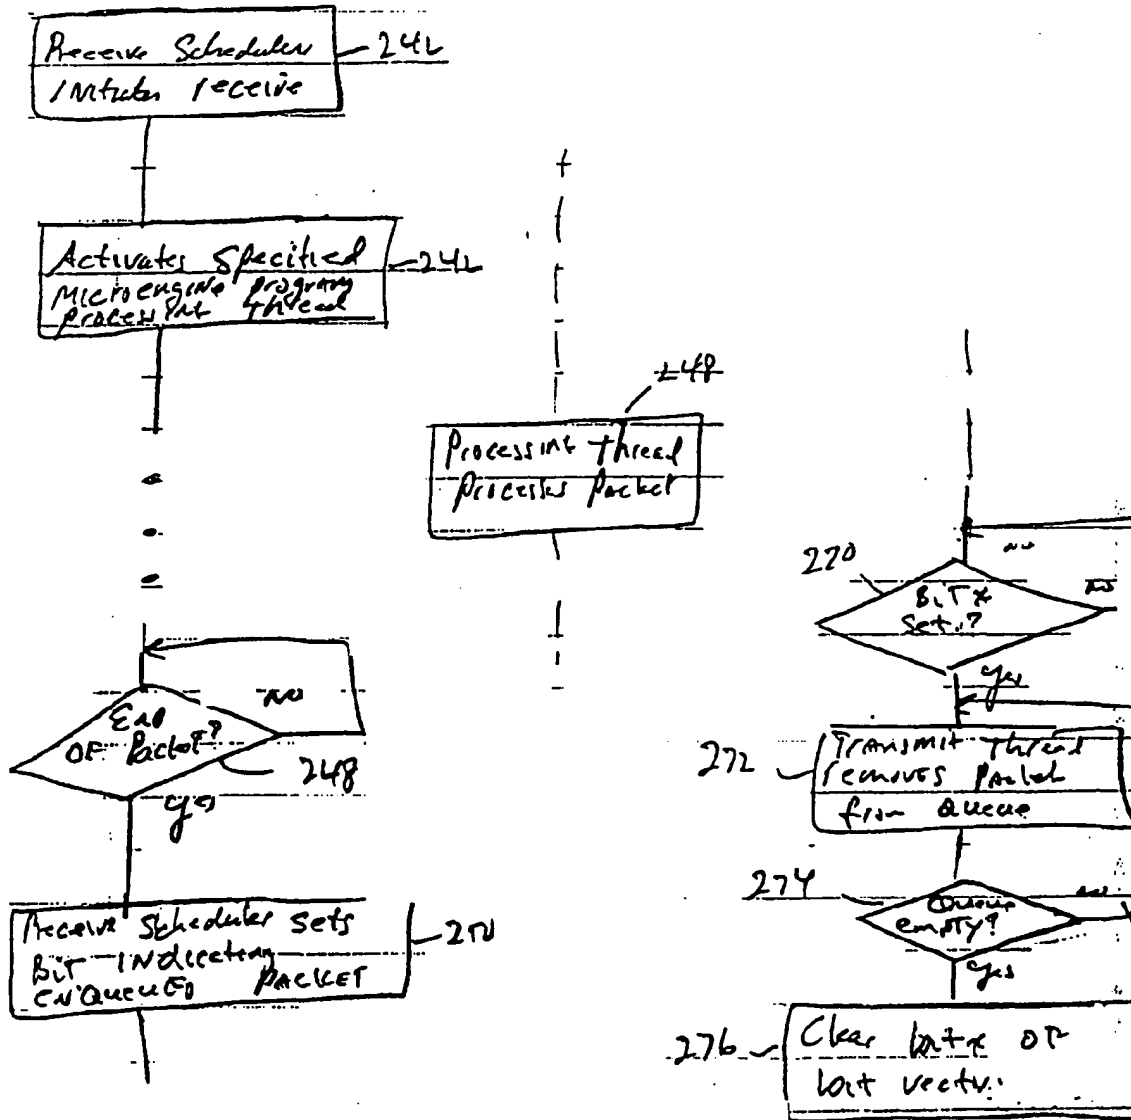 Receive Scheduler
Initiates receive
242
Activates Specified
Microengine program
processing thread
242
248
Processing thread
Processes Packet
End
OF Packet?
NO
248
yes
Receive Scheduler Sets
BiT INdicating
ENQUEUED PACKET
250
NO
270
BiT x
Set?
NO
yes
272
Transmit thread
removes Packet
from Queue
274
Queue
empty?
NO
yes
276
Clear bit x OF
bit vector